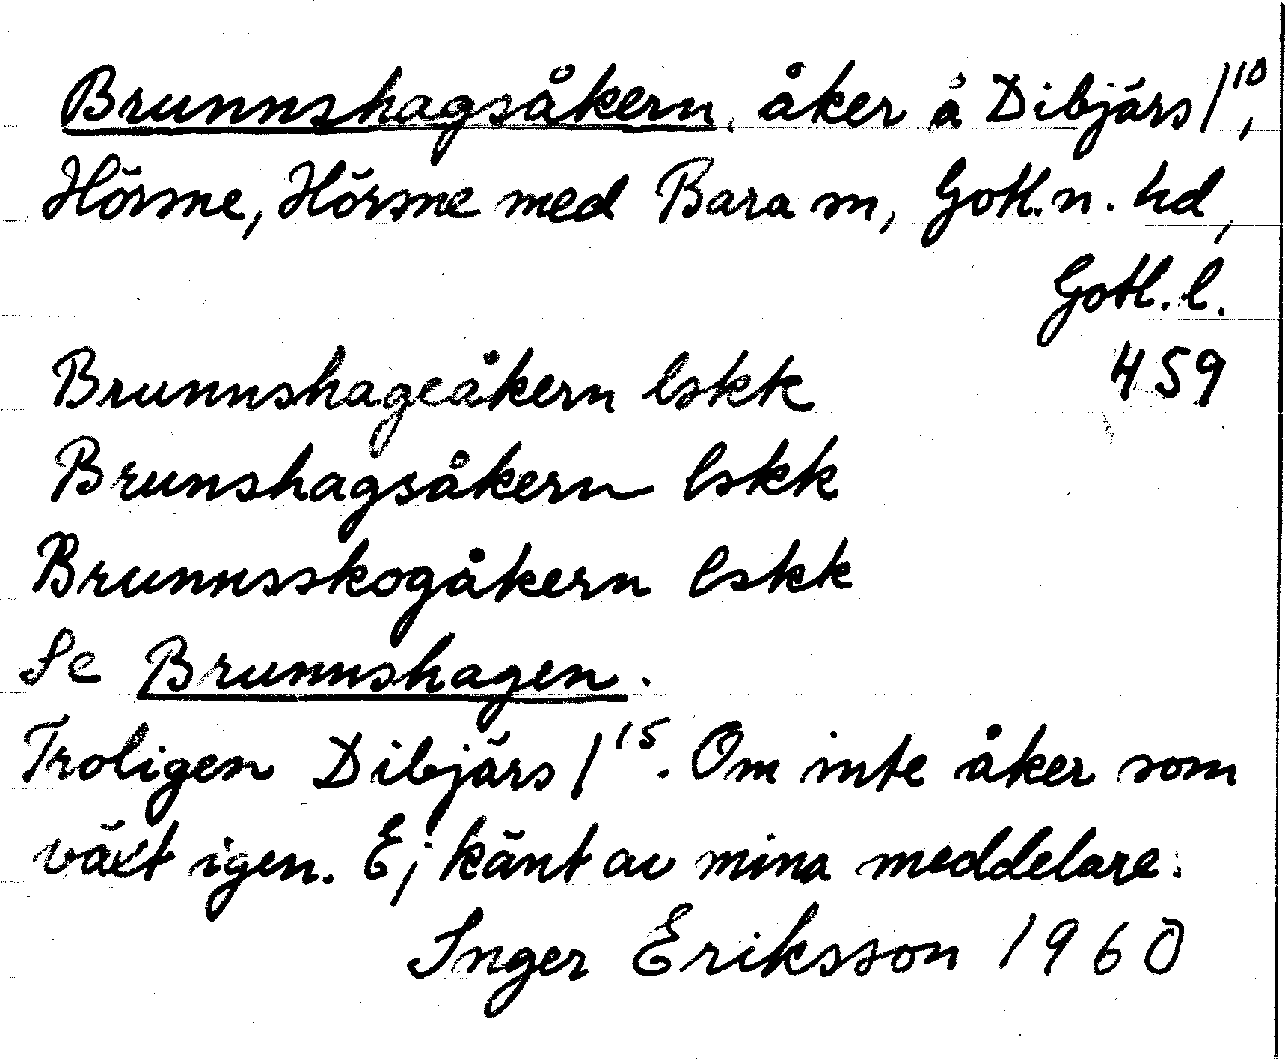 Brunnshagsåkern, åker å Dibjärs 1¹⁰,
Hörsne, Hörsne med Bara sn, Gotl. n. hd,
Gotl. l.
Brunnshageåkern lskk 459
Brunshagsåkern lskk
Brunnsskogåkern lskk
Se Brunnshagen.
Troligen Dibjärs 1¹⁵. Om inte åker som
växt igen. Ej känt av mina meddelare.
Inger Eriksson 1960